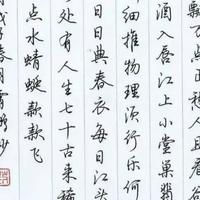 飘万点 人且看
酒入唇江上小堂巢翡
细推物理须行乐何
日日典春衣每日江头
处有人生七十古来稀
点水蜻蜓款款飞